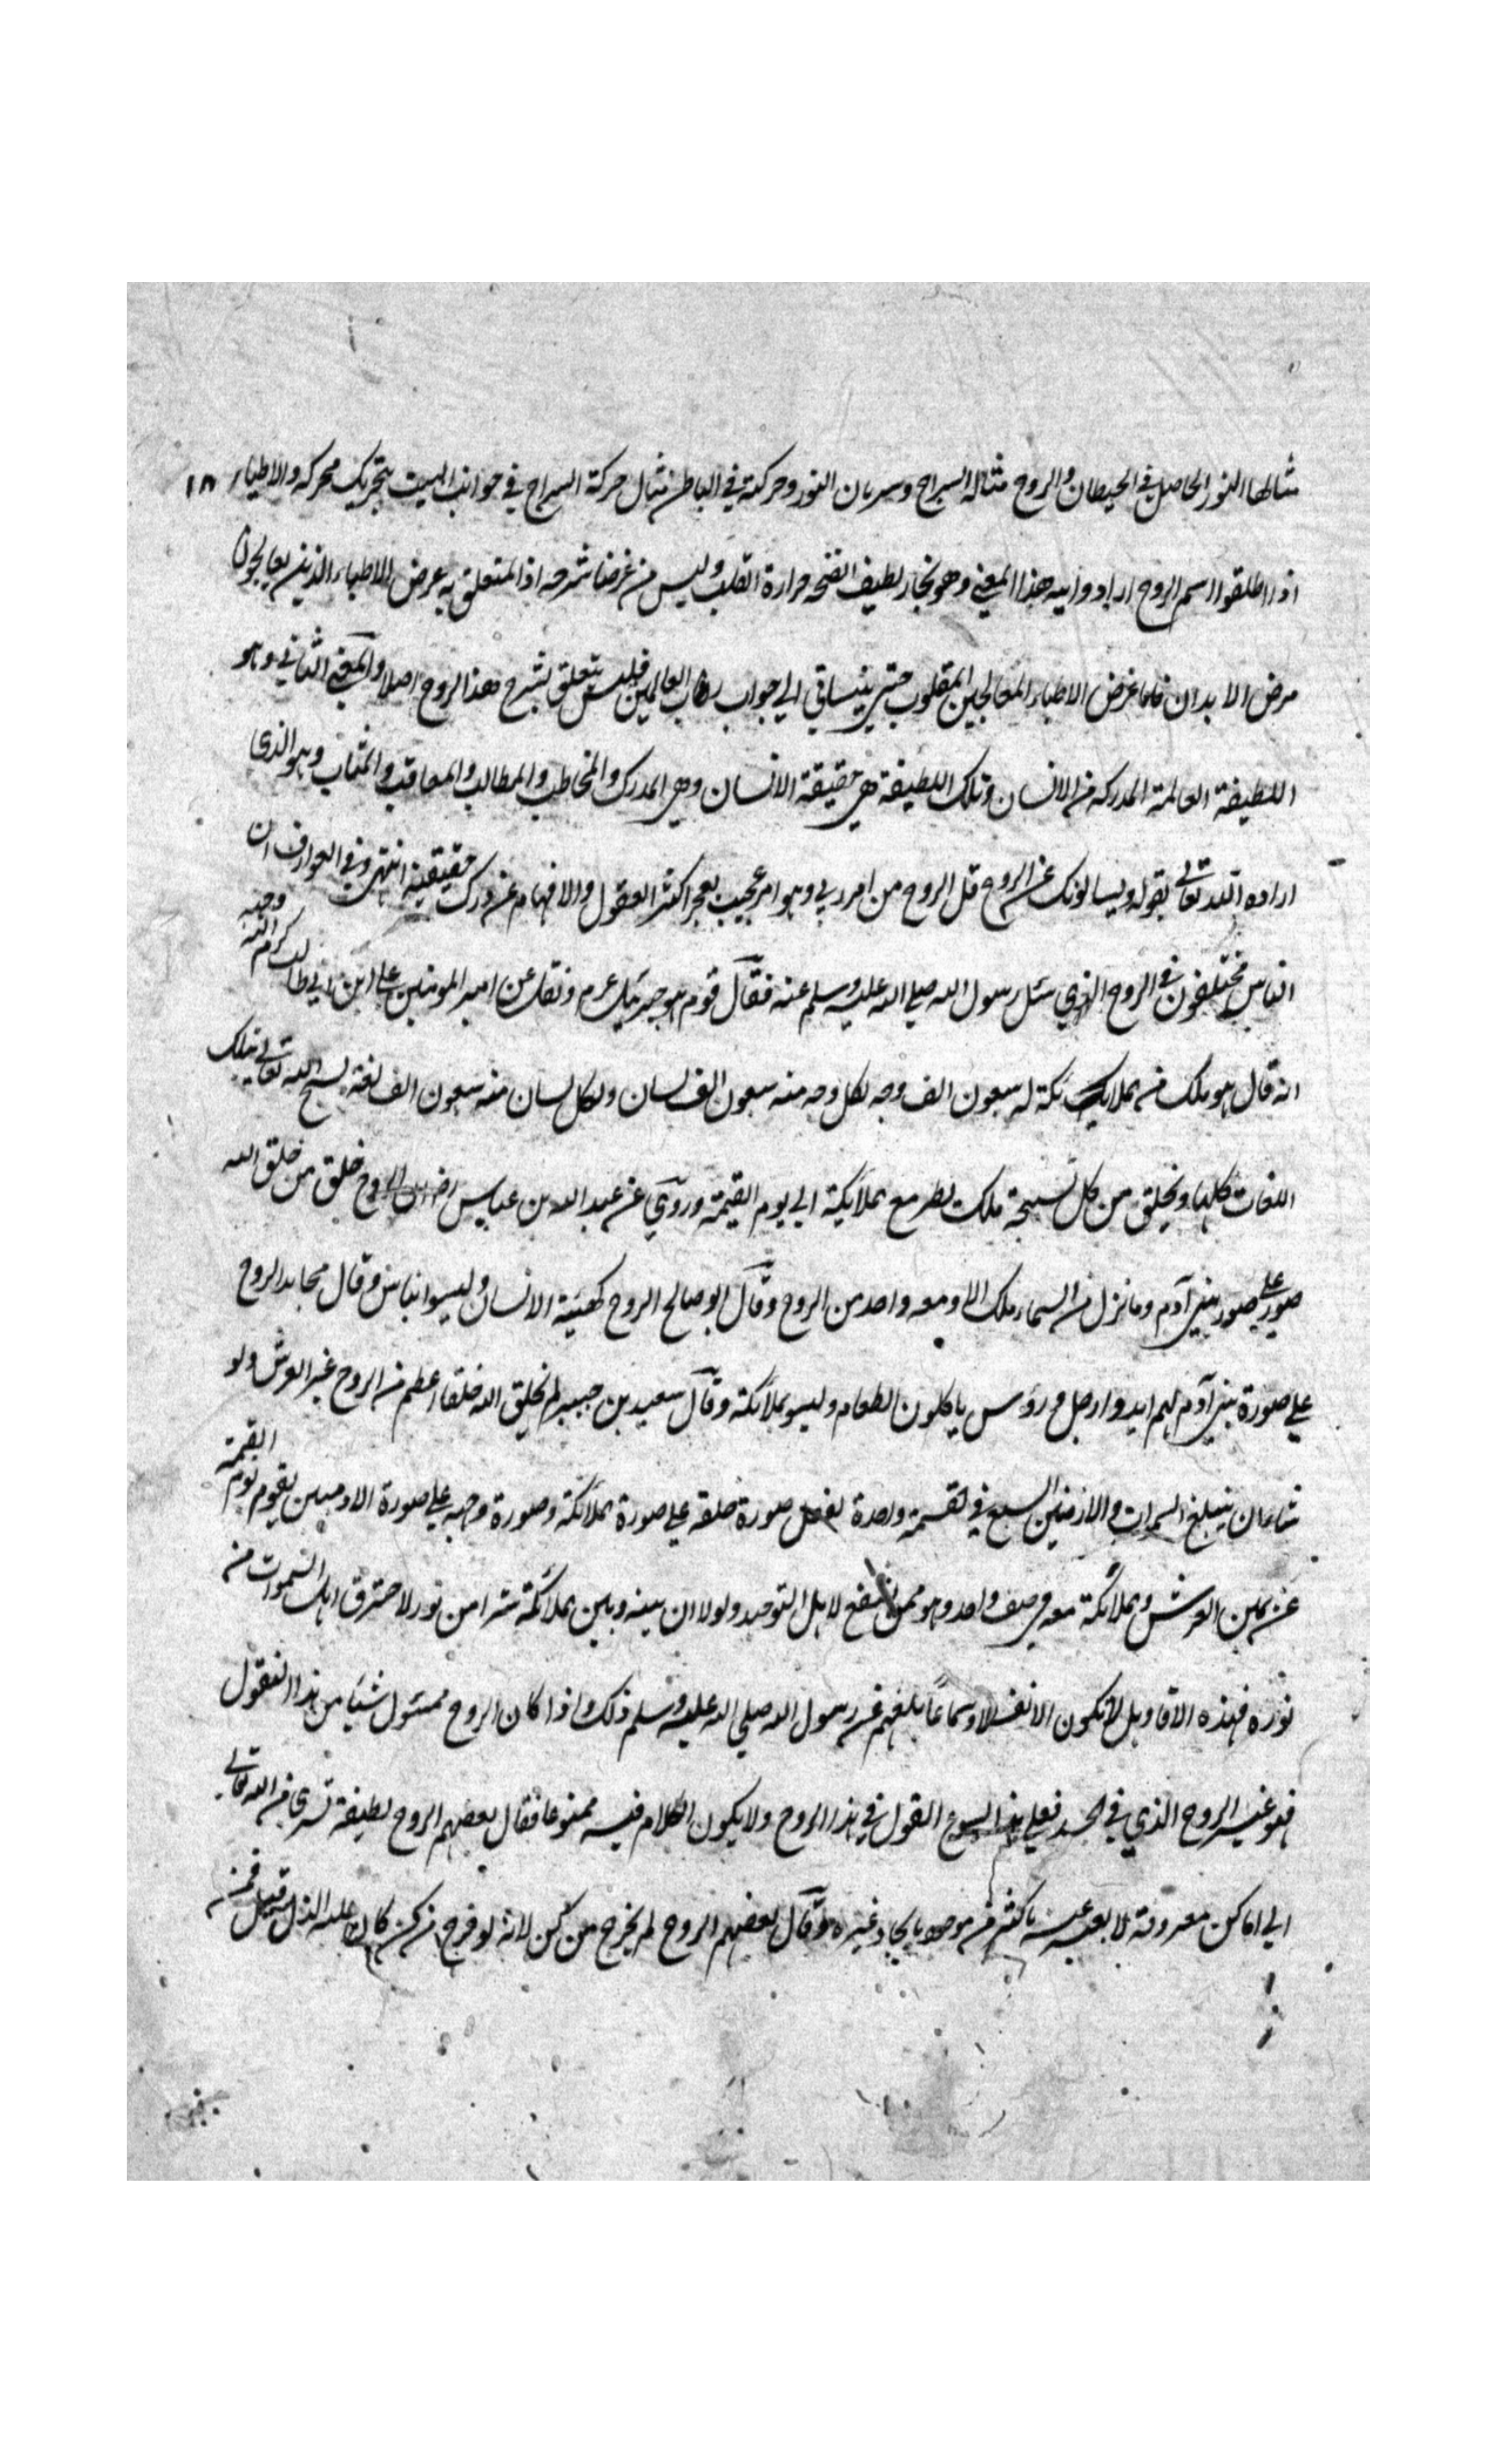 مثالها النور الحاصل في الحيطان والروح مثاله السراج وسريان النور وحركته في الباطن مثال حركة السراج في جوانب البيت بتحريك محركه والاطباء ١٨
اذا اطلقوا اسم الروح ارادوا به هذا المعني وهو بخار لطيف انضجه حرارة القلب وليس من غرضنا شرحه اذ المتعلق به غرض الاطباء الذين يعالجون
مرض الابدان فاما غرض الاطباء المعالجين القلوب حتي ينساق الي جواب رب العالمين فليس يتعلق بشرح هذا الروح اصلا والمعني الثاني وهو
اللطيفة العالمة المدركه من الانسان وتلك اللطيفة هي حقيقة الانسان وهي المدرك والمخاطب والمطالب والمعاقب والمثاب وهو الذى
اراده الله تعالي بقوله ويسالونك عن الروح قل الروح من امر ربي وهو امر عجيب يعجز اكثر العقول والافهام عن درك حقيقته انتهي وفي العوارف ان
الناس مختلفون في الروح الذي سئل رسول الله صلي الله عليه وسلم عنه فقال قوم هو جبرئيل عرم ونقل عن امير المومنين علي ابن ابي طالب كرم الله وجهه
انه قال هو ملك من ملائكة له سبعون الف وجه لكل وجه منه سبعون الف لسان ولكل لسان منه سبعون الف لغة يسبح الله تعالي بتلك
اللغات كلها ويخلق من كل تسبيحة ملك يطير مع ملائكة الي يوم القيمة وروي عن عبد الله بن عباس رض ان الروح خلق من خلق الله
صور علي صور بني آدم وما نزل من السماء ملك الا ومعه واحد من الروح وقال ابو صالح الروح كهيئة الانسان وليسوا بناس وقال مجاهد الروح
علي صورة بني آدم لهم ايد وارجل ورؤس ياكلون الطعام وليسو بملائكة وقال سعيد بن جبير لم يخلق الله خلقا اعظم من الروح غير العرش ولو
شاء ان يبلغ السموات والارضين السبع في لقمة واحدة لفعل صورة خلقه علي صورة ملائكة وصورة وجهه علي صورة الادميين يقوم يوم القيمة
عن يمين العرش وملائكة معه في صف واحد وهو ممن يشفع لاهل التوحيد ولولا ان بينه وبين ملائكة سترا من نور لاحترق اهل السموات من
نوره فهذه الاقاويل لا تكون الا نقلا وسماعا بلغهم عن رسول الله صلي الله عليه وسلم ذلك واذا كان الروح مسئول شيئا من هذا المنقول
فهو غير الروح الذي في الجسد فعلي هذا القول في هذا الروح ولا يكون الكلام فيه ممنوعا فقال بعضهم الروح لطيفة تسرى من الله تعالي
الي اماكن معروفة لا يعبر عنه باكثر من موجود بايجاد غيره وقال بعضهم الروح لم يخرج من كن لانه لو خرج من كن كان عليه الذل قيل فمن